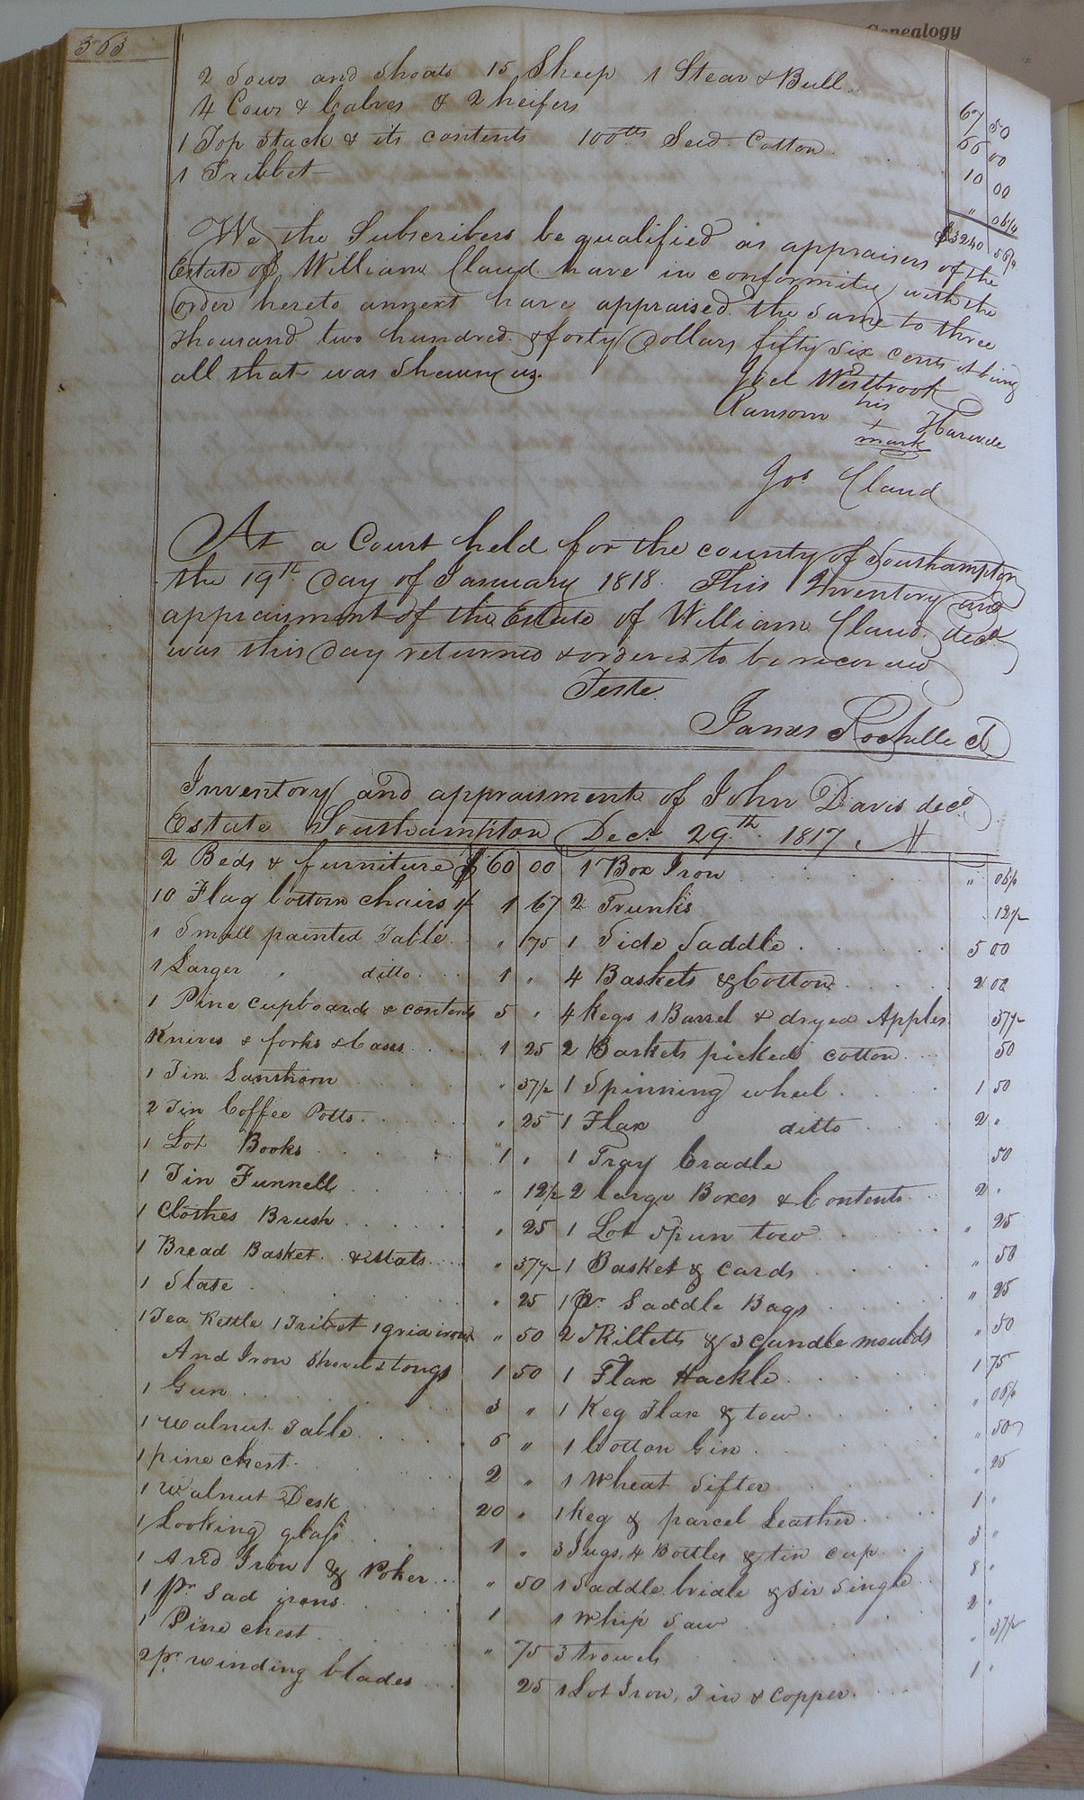 Genealogy
363
2 Sows and Shoats 15 Sheep 1 Stear & Bull
4 Cows & Calves & 2 heifers 67 50
1 Top Stack & its contents 100lbs Seed Cotton 66 00
1 Tribbet 10 00
" 06 1/4
$3240 56 1/4
We the Subscribers be qualified as appraisers of the
Estate of William Claud have in conformity with the
order hereto annext have appraised the same to three
thousand two hundred & forty Dollars fifty Six cents it being
all that was Shewn us.
Joel Westbrook
Ransom his
+
mark
Jos Claud
At a Court held for the county of Southampton
the 19th Day of January 1818 This Inventory and
appraisment of the Estate of William Claud decd
was this day returned & ordered to be recorded
Teste
James Rochelle Cl
Inventory and appraisment of John Davis decd
Estate Southampton Decr 29th 1817
2 Beds & furniture $ 60 00 1 Box Iron " 06 1/4
10 Flag bottom chairs 1 67 2 Trunks 12 1/2
1 Small painted Table " 75 1 Side Saddle 5 00
1 Larger ditto 1 " 4 Baskets & Cotton 2 00
1 Pine Cupboard & contents 5 " 4 kegs 1 Barrel & dryed Apples 37 1/2
Knives & forks & Cases 1 25 2 Baskets picked cotton 50
1 Tin Lanthorn " 37 1/2 1 Spinning wheel 1 50
2 Tin Coffee Potts " 25 1 Flax ditto 2 "
1 Lot Books 1 " 1 Tray Cradle 50
1 Tin Funnell " 12 1/2 2 large Boxes & Contents 2 "
1 Clothes Brush " 25 1 Lot Spun tow " 25
1 Bread Basket & Matts " 37 1/2 1 Basket & Cards " 50
1 Slate " 25 1 Pr Saddle Bags " 25
1 Tea Kettle 1 Tribet 1 grid iron " 50 2 Skilletts & 3 Candle moulds " 50
And Iron Shovel & tongs 1 50 1 Flax Hackle 1 75
1 Gun 3 " 1 Keg Flax & tow " 06 1/4
1 Walnut Table 6 " 1 Cotton Gin " 50
1 pine chest 2 " 1 Wheat Sifter " 25
1 Walnut Desk 20 " 1 keg & parcel Leather 1 "
1 Looking glass 1 " 3 Jugs, 4 Bottles & tin cup 3 "
1 And Iron & Poker " 50 1 Saddle bridle & Sir Single 8 "
1 pr Sad irons 1 1 Whip Saw 2 "
1 Pine Chest " 75 3 trowels " 37 1/2
2 pr winding blades 25 1 Lot Iron, Tin & Copper 1 "